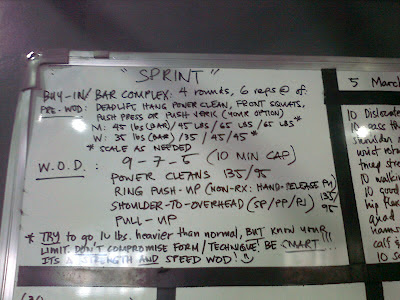 "SPRINT"
BUY-IN/ BAR COMPLEX: 4 rounds, 6 reps @ of:
PRE-WOD: DEADLIFT, HANG POWER CLEAN, FRONT SQUATS,
PUSH PRESS OR PUSH JERK (YOUR OPTION)
M: 45 lbs (BAR) / 45 LBS / 65 LBS / 65 LBS *
W: 35 lbs (BAR) / 35 / 45 / 45 *
* SCALE AS NEEDED
W.O.D.: 9-7-5 (10 MIN CAP)
POWER CLEANS 135/95
RING PUSH-UP (NON-RX: HAND-RELEASE PU)
SHOULDER-TO-OVERHEAD (SP/PP/PJ) 135/95
PULL-UP
* TRY to go 10 lbs. heavier than normal, BUT KNOW YOUR
LIMIT. DON'T COMPROMISE FORM/TECHNIQUE! BE SMART!!!
ITS A STRENGTH AND SPEED WOD!
5 March
10 Dislocate
10 pass th
shoulder
wrist rota
10 walkin
10 good
hip fle
quad
hams
calf s
10 s